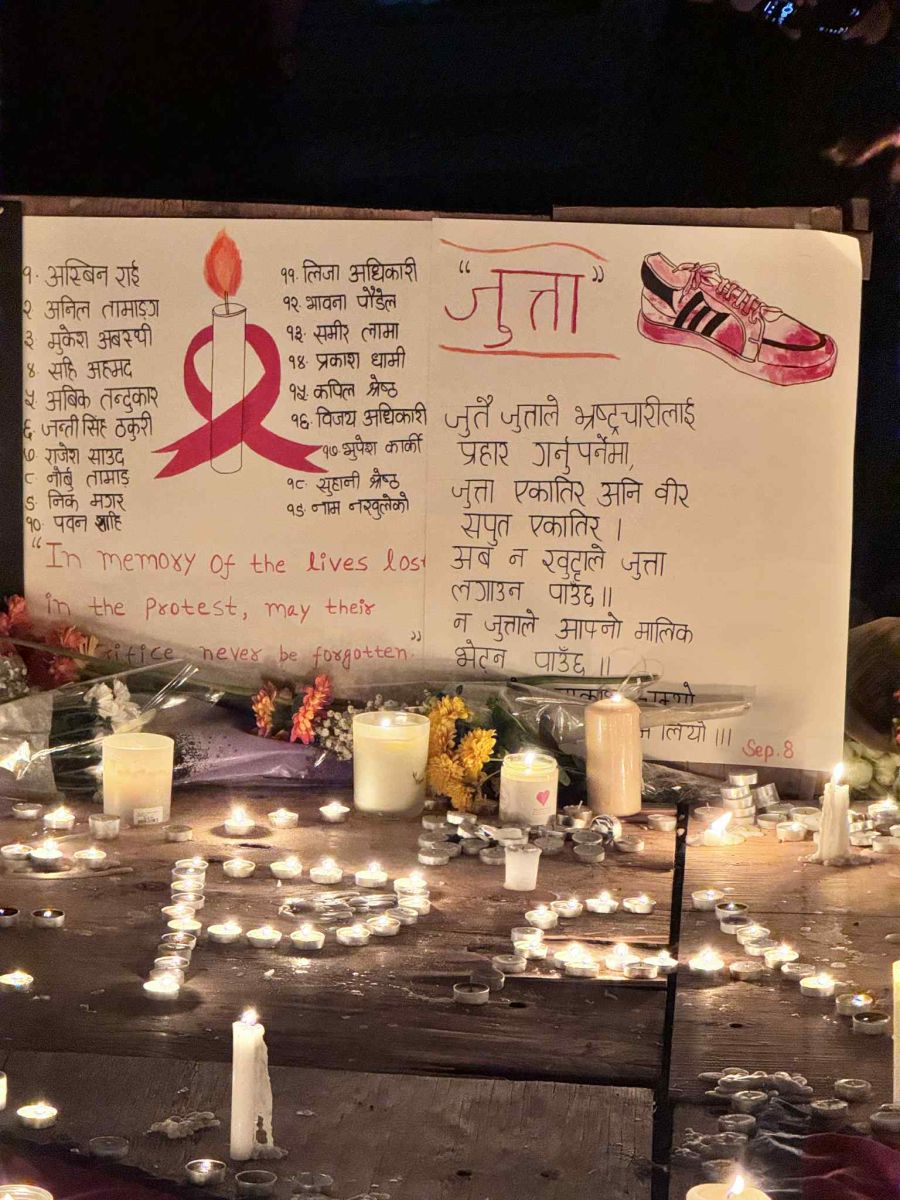 १. अस्बिन राई
२ अनिल तामाङ्ग
३ मुकेश अबस्थी
४ सहि अहमद
५ अबिक तन्दुकार
६. जन्ती सिंह ठकुरी
७ राजेश साउद
८ नोर्बु तामाङ
९ निक मगर
१०. पवन शाहि
११. लिजा अधिकारी
१२. भावना पौडेल
१३. समीर लामा
१४. प्रकाश धामी
१५. कपिल श्रेष्ठ
१६. विजय अधिकारी
१७. भुपेश कार्की
१८. सुहानी श्रेष्ठ
१९. नाम नखुलेको
"In memory of the lives lost
in the protest, may their
never be forgotten."
"जुत्ता"
जुतै जुत्ताले भ्रष्ट्रचारीलाई
प्रहार गर्नुपर्नेमा,
जुत्ता एकातिर अनि वीर
सपुत एकातिर।
अब न खुट्टाले जुत्ता
लगाउन पाउँछ॥
न जुत्ताले आफ्नो मालिक
भेट्न पाउँछ॥
लियो |||
Sep. 8